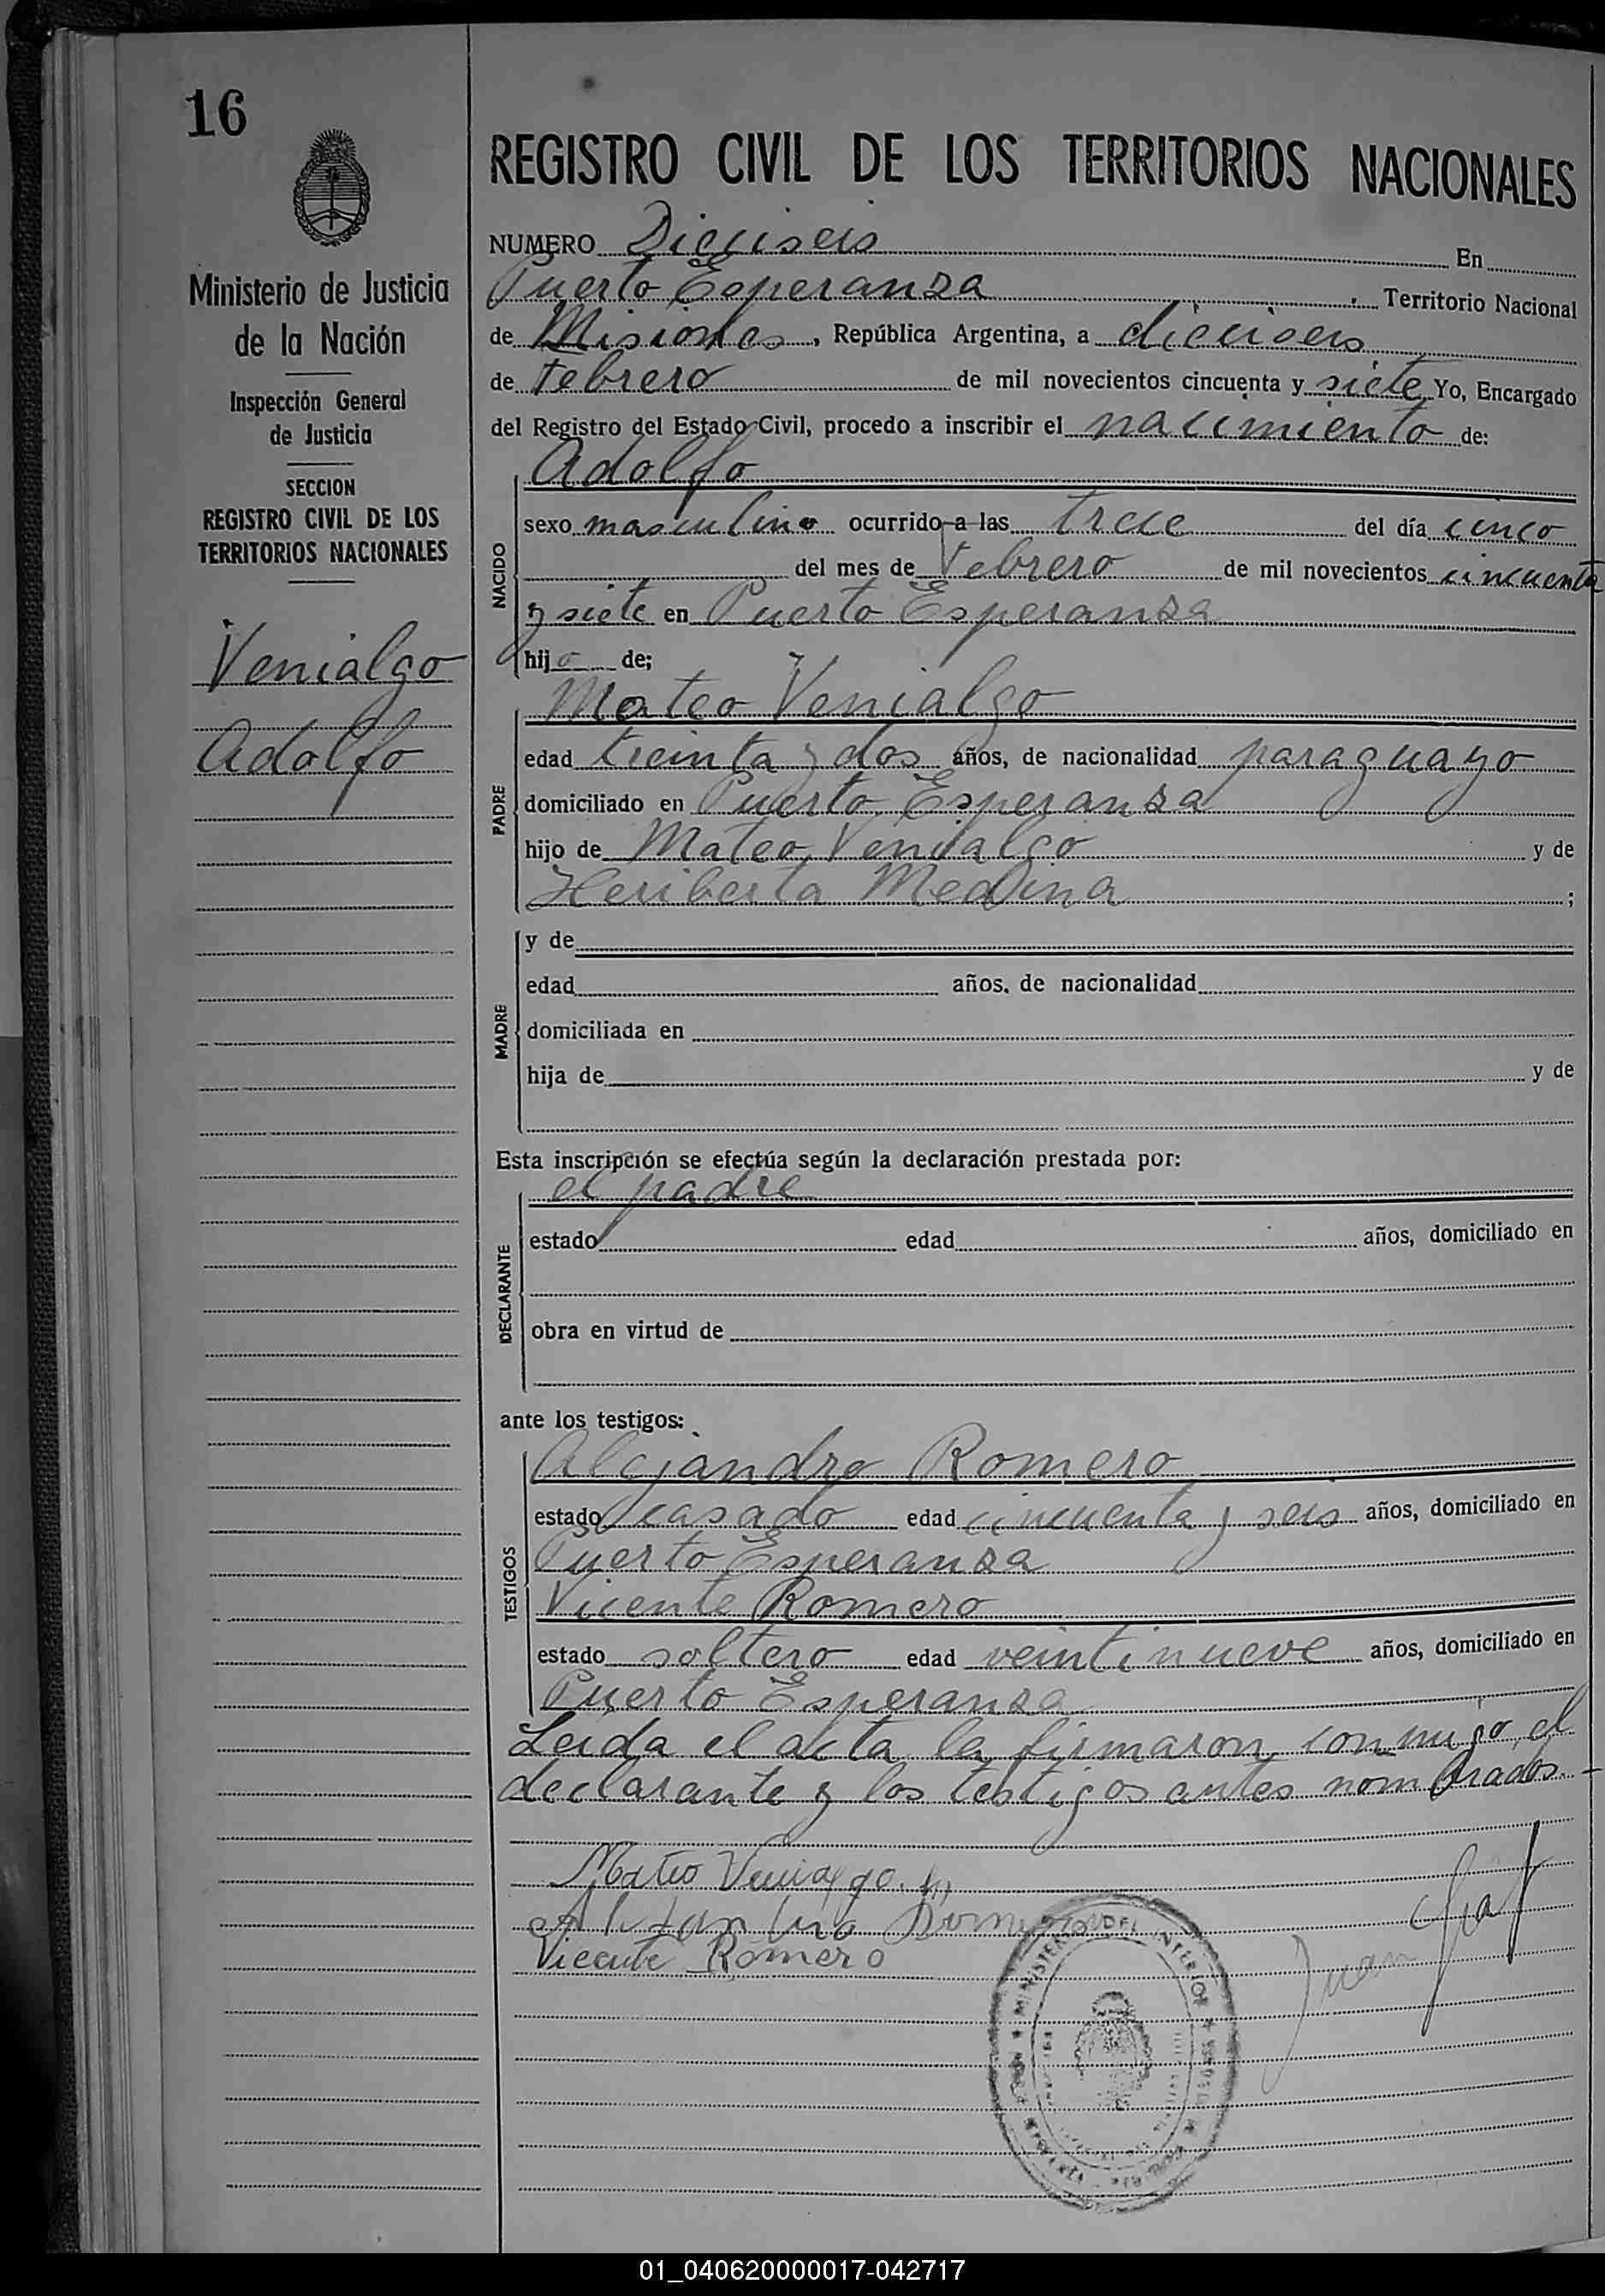 16
REGISTRO CIVIL DE LOS TERRITORIOS NACIONALES
Ministerio de Justicia
de la Nación
Inspección General
de Justicia
SECCION
REGISTRO CIVIL DE LOS
TERRITORIOS NACIONALES
Venialgo
Adolfo
NUMERO Dieciseis En
Puerto Esperanza, Territorio Nacional
de Misiones, República Argentina, a dieciseis
de Febrero de mil novecientos cincuenta y siete Yo, Encargado
del Registro del Estado Civil, procedo a inscribir el nacimiento de:
NACIDO
Adolfo
sexo masculino ocurrido a las trece del día cinco
del mes de Febrero de mil novecientos cincuenta
y siete en Puerto Esperanza
hijo de;
PADRE
Mateo Venialgo
edad treinta y dos años, de nacionalidad paraguayo
domiciliado en Puerto Esperanza
hijo de Mateo Venialgo y de
Heriberta Medina ;
MADRE
y de
edad años, de nacionalidad
domiciliada en
hija de y de
Esta inscripción se efectúa según la declaración prestada por:
DECLARANTE
el padre
estado edad años, domiciliado en
obra en virtud de
ante los testigos:
TESTIGOS
Alejandro Romero
estado casado edad cincuenta y seis años, domiciliado en
Puerto Esperanza
Vicente Romero
estado soltero edad veintinueve años, domiciliado en
Puerto Esperanza
Leida el acta la firmaron conmigo, el
declarante y los testigos antes nombrados.-
Mateo Venialgo. h)
Vicente Romero
Juan
MINISTERIO DEL INTERIOR
01_040620000017-042717